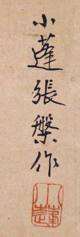 小蓬張槃作